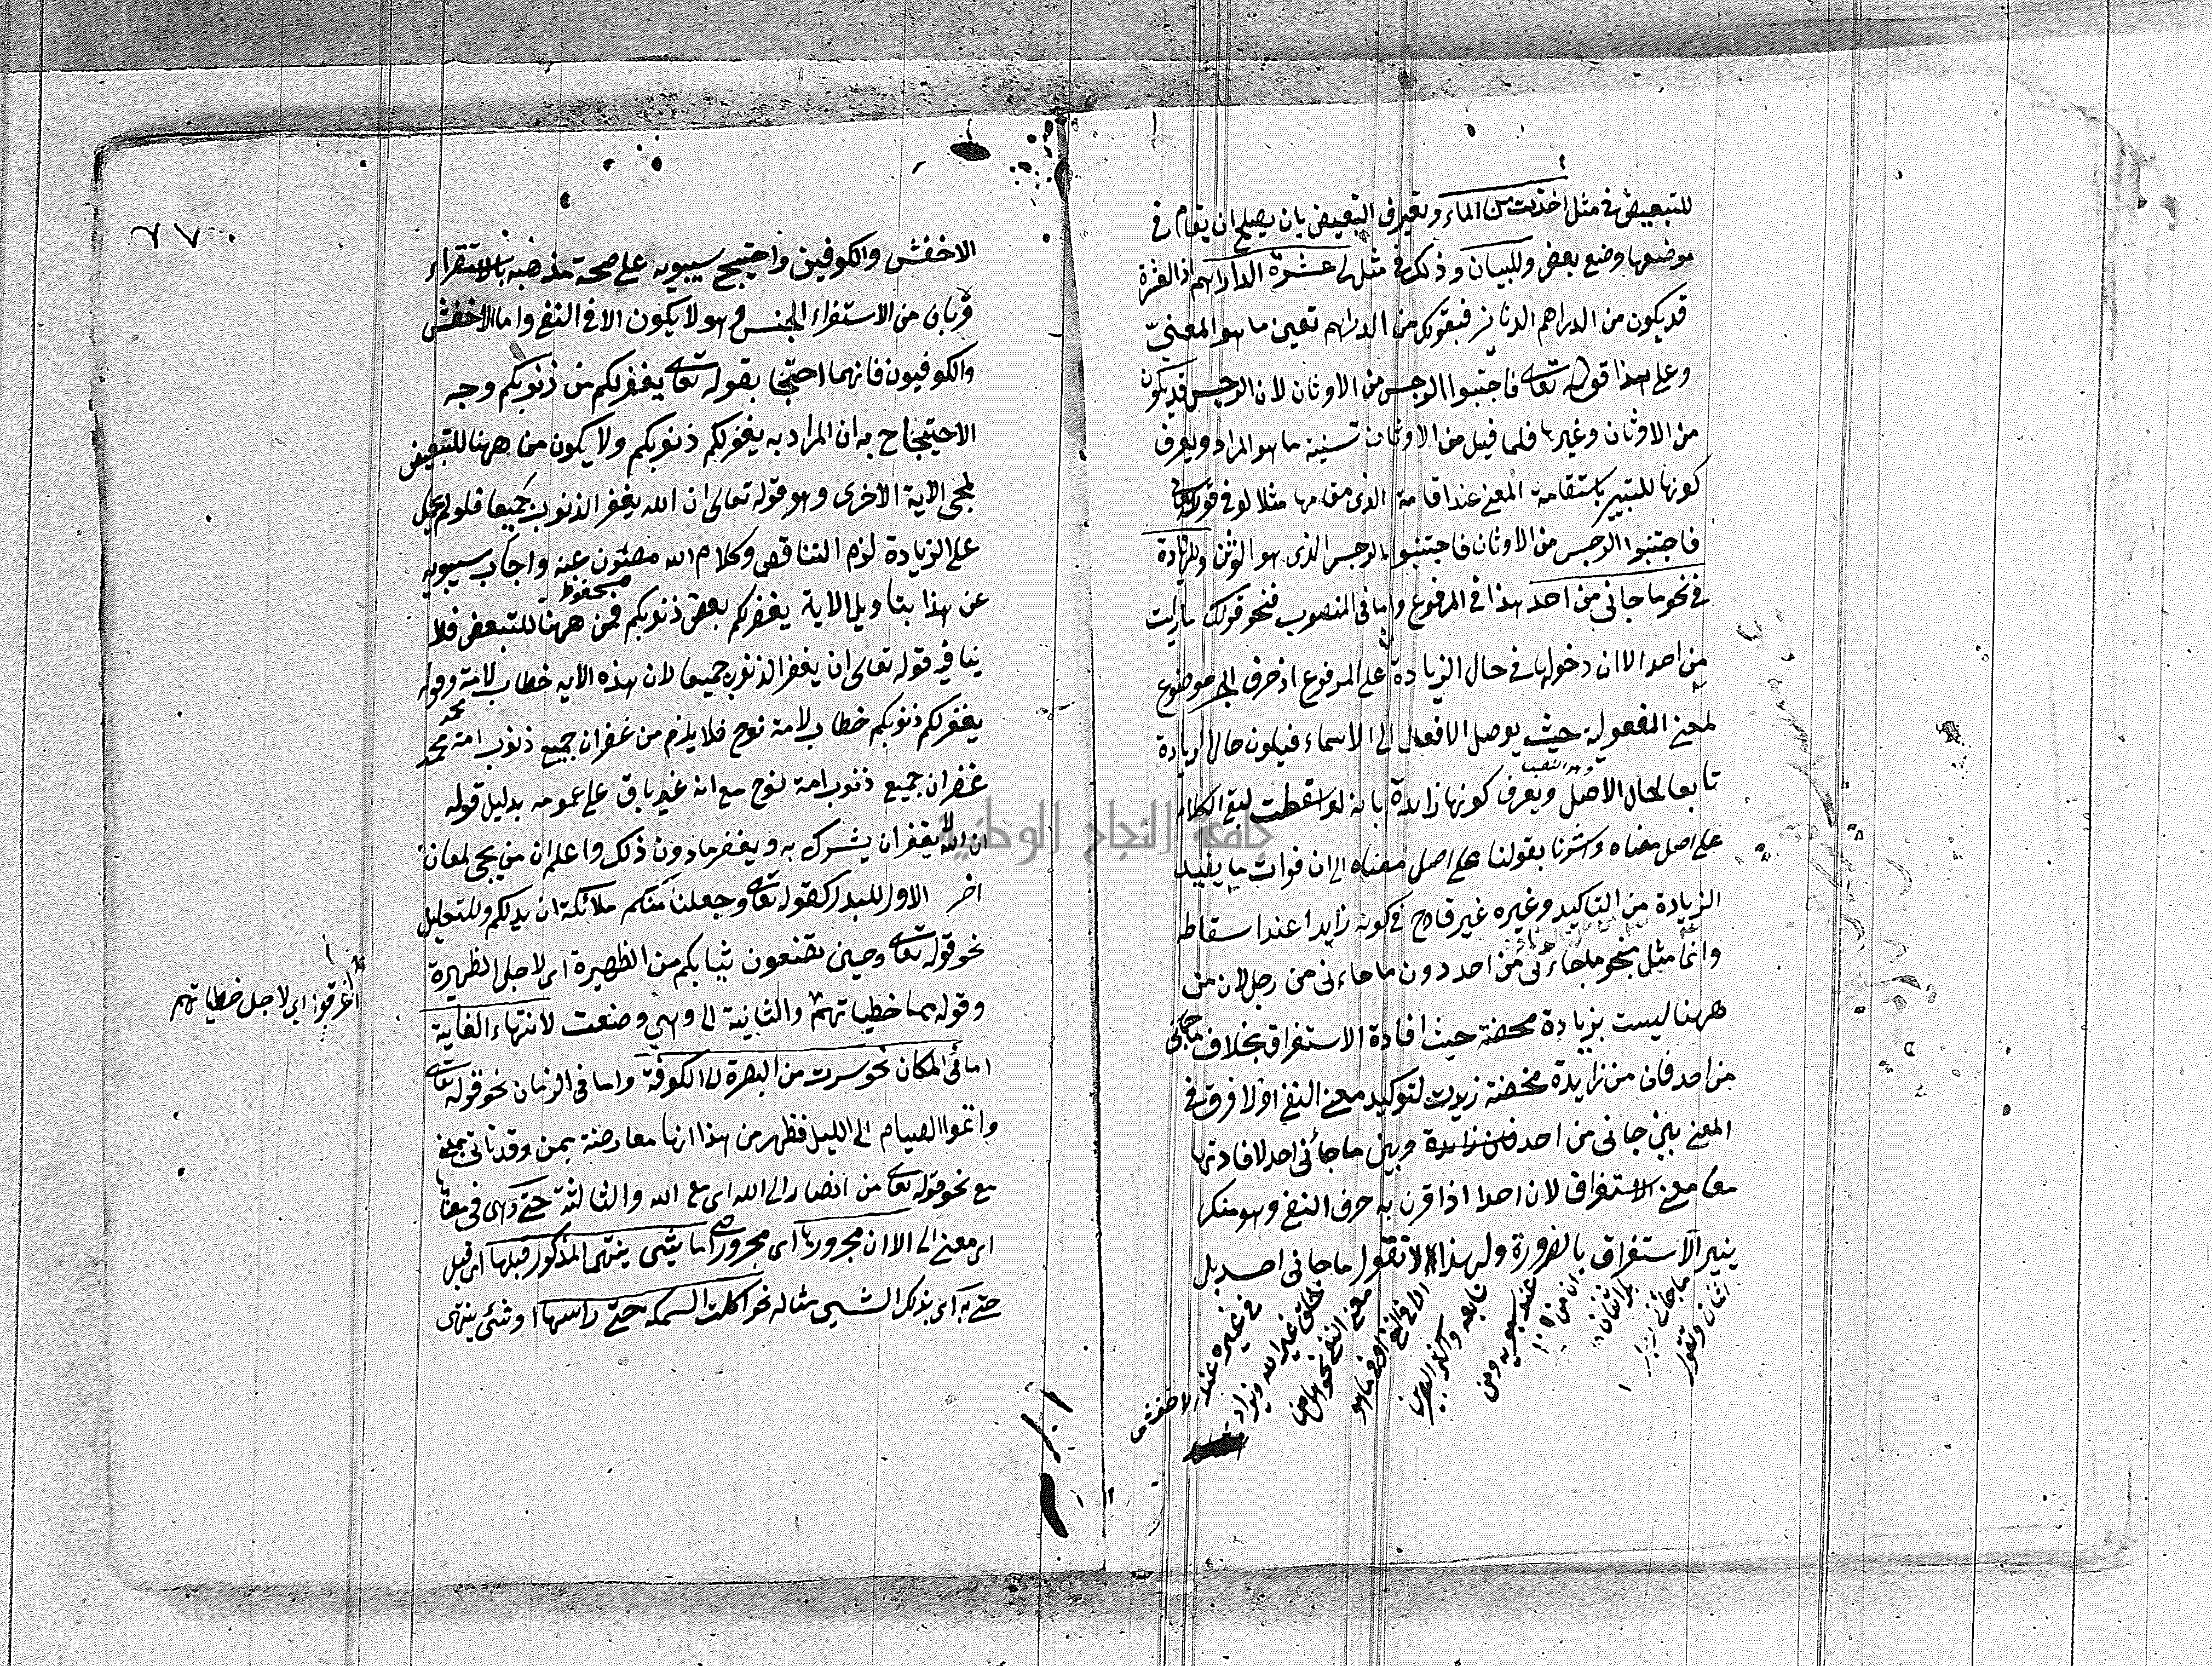 للتبعيض في مثل اخذت من الماء ويعرف التبعيض بان يصلح ان يقام في
موضعها وضع بعض وللبيان وذلك في مثل لي عشرة الدراهم اذ العشرة
قد يكون من الدراهم الدنانير فبقولك من الدراهم تعين ما هو المعنيّ
وعلى هذا قوله تعالى فاجتنبوا الرجس من الاوثان لان الرجس قد يكون
من الاوثان وغيرها فلما قيل من الاوثان تبينه ما هو المراد ويعرف
كونها للتبيير باستقامة المعنى عند اقامة الذي مقامها مثلا لو في قوله تعالى
فاجتنبوا الرجس من الاوثان فاجتنبوا الرجس الذي هو الوثن وللزيادة
في نحو ما جاني من احد هذا في المرفوع واما في المنصوب فنحو قولك ما رايت
من احد الا ان دخولها في حال الزيادة على المرفوع اذ حرف الجر موضوع
لمعنى المفعولية حيث يوصل الافعال الى الاسماء فيكون حال الزيادة
وهو النصب
تابعا لحال الاصل ويعرف كونها زايدة بانه لو اسقطت لبقي الكلام
على اصل معناه واشرنا بقولنا على اصل معناه الى ان فوات ما يفيد
الزيادة من التاكيد وغيره غير قادح في كونه زايدا عند اسقاطه
وانما مثل بنحو ما جاءني من احد دون ما جاءني من رجل لان من
ههنا ليست بزيادة محضة حيث افادة الاستغراق بخلاف ما جاني
من احد فان من زايدة محضة زيدت لتوكيد معنى النفي اذ لا فرق في
المعنى بين جاني من احد فمن زايدة وبين ما جائني احد لافادتها
معا معنى الاستغراق لان احدا اذا قرن به حرف النفي وهو منكر
يتير الاستغراق بالضرورة ولهذا لا تقول ما جاني احد بل
اثنان وتقول
ما جائني
بل اثنان
ان من
عند سيبويه ومن
تابعه واكثر البصريين
الا في النفي او في ما هو
معنى النفي نحو هل من
خالق غير الله ويزاد
في غيره عند الاخفش
٧٧
الاخفش والكوفيين واحتج سيبويه على صحة مذهبه بالاستقراء
وبان من الاستغراق الجنس وهو لا يكون الا في النفي واما الاخفش
والكوفيون فانهما احتجا بقوله تعالى يغفر لكم من ذنوبكم وجه
الاحتجاج به ان المراد به يغفر لكم ذنوبكم ولا يكون من ههنا للتبعيض
لمجي الاية الاخرى وهو قوله تعالى ان الله يغفر الذنوب جميعا فلو لم يحمل
على الزيادة لزم التناقض وكلام الله مصئون عنه واجاب سيبويه
محفوظ
عن هذا بتاويل الاية يغفر لكم بعض ذنوبكم فمن ههنا للتبعض فلا
ينافيه قوله تعالى ان يغفر الذنوب جميعا لان هذه الايه خطاب لامة وقوله
محمد
يغفر لكم ذنوبكم خطاب لامة نوح فلا يلزم من غفران جميع ذنوب امة محمد
غفران جميع ذنوب امة نوح مع انه غير باق على عمومه بدليل قوله
ان الله لا يغفر ان يشرك به ويغفر ما دون ذلك واعلم ان من يجي لمعان
اخر الاول للبدل كقوله تعالى وجعلنا منكم ملائكة ان بدلكم وللتعليل
نحو قوله تعالى وحين تضعون ثيابكم من الظهيرة اى لاجل الظهيرة
وقوله مما خطيياتهم والثانية الى وهي وضعت لانتهاء الغاية
اغرقوا اى لاجل خطياتهم
اما في المكان نحو سرت من البصرة الى الكوفة واما في الزمان نحو قوله تعالى
واتموا الصيام الى الليل فظهر من هذا انها معارضة بمن وقد تاتى بمعنى
مع نحو قوله تعالى من انصار الى الله اى مع الله والثالثة حتى وهي في معناها
اى معنى الى الا ان مجرورها اى مجرور حتى اما شئ ينتهى المذكور قبلها اى قبل
حتى به اى بذلك الشيى مثاله نحو اكلت السمكة حتى راسها او شئ ينتهى
جامعة النجاح الوطنية